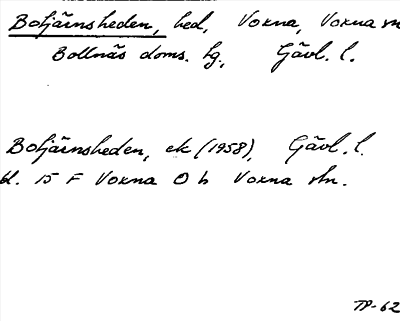 Boltjärnsheden, hed, Voxna, Voxna sn
Bollnäs doms. hg., Gävl. l.
Boltjärnsheden, ek (1958), Gävl. l.
bl. 15 F Voxna O b Voxna sn.
TP-62